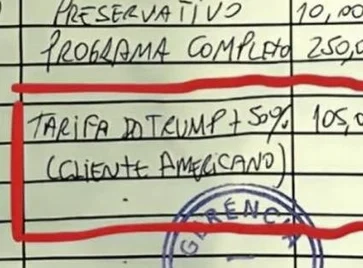 PRESERVATIVO 10,00
PROGRAMA COMPLETO 250,0
TARIFA DO TRUMP + 50% 105,0
(CLIENTE AMERICANO)
GERÊNCI